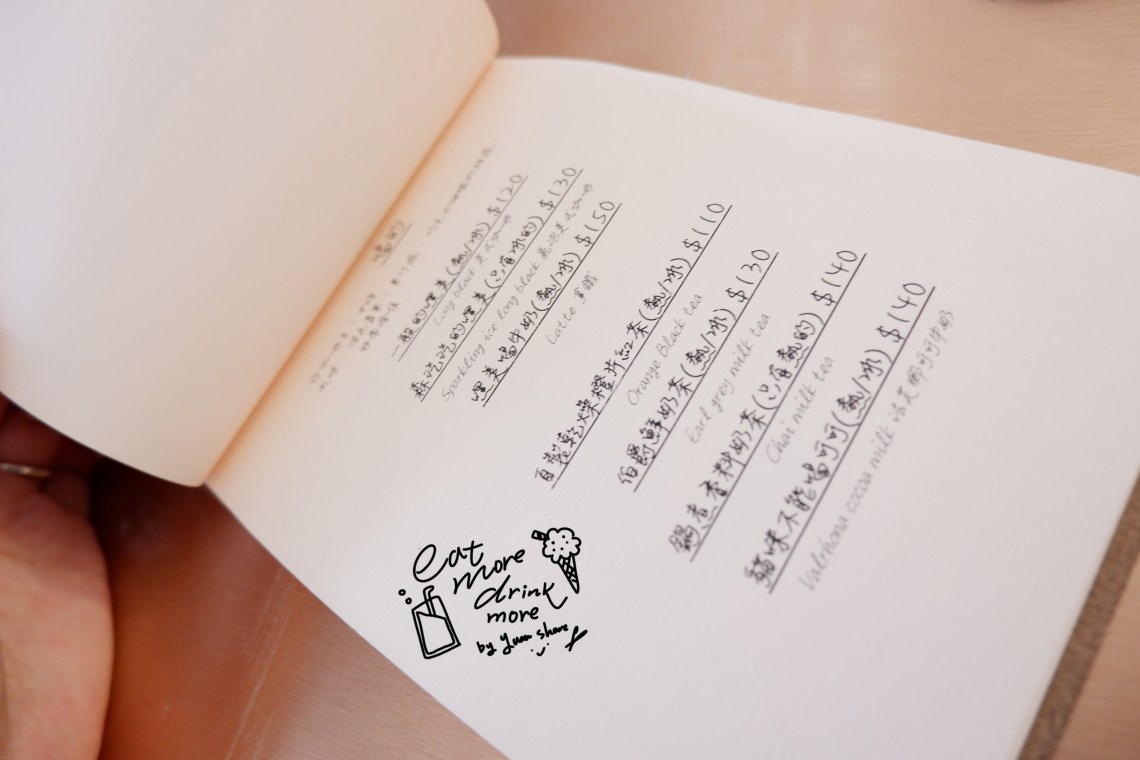 喝的
一般的黑美(熱/冰) $120
Long black 美式咖啡
森沁沁的黑美(只有冰的) $130
Sparkling ice long black 氣泡美式咖啡
黑美喝牛奶(熱/冰) $150
Latte 拿鐵
自製乾燥橙片紅茶(熱/冰) $110
Orange Black tea
伯爵鮮奶茶(熱/冰) $130
Earl grey milk tea
鍋煮香料奶茶(只有熱的) $140
Chai milk tea
貓咪不能喝可可(熱/冰) $140
Valrhona cocoa milk 法芙娜可可牛奶
eat
more
drink
more
by Yuan share